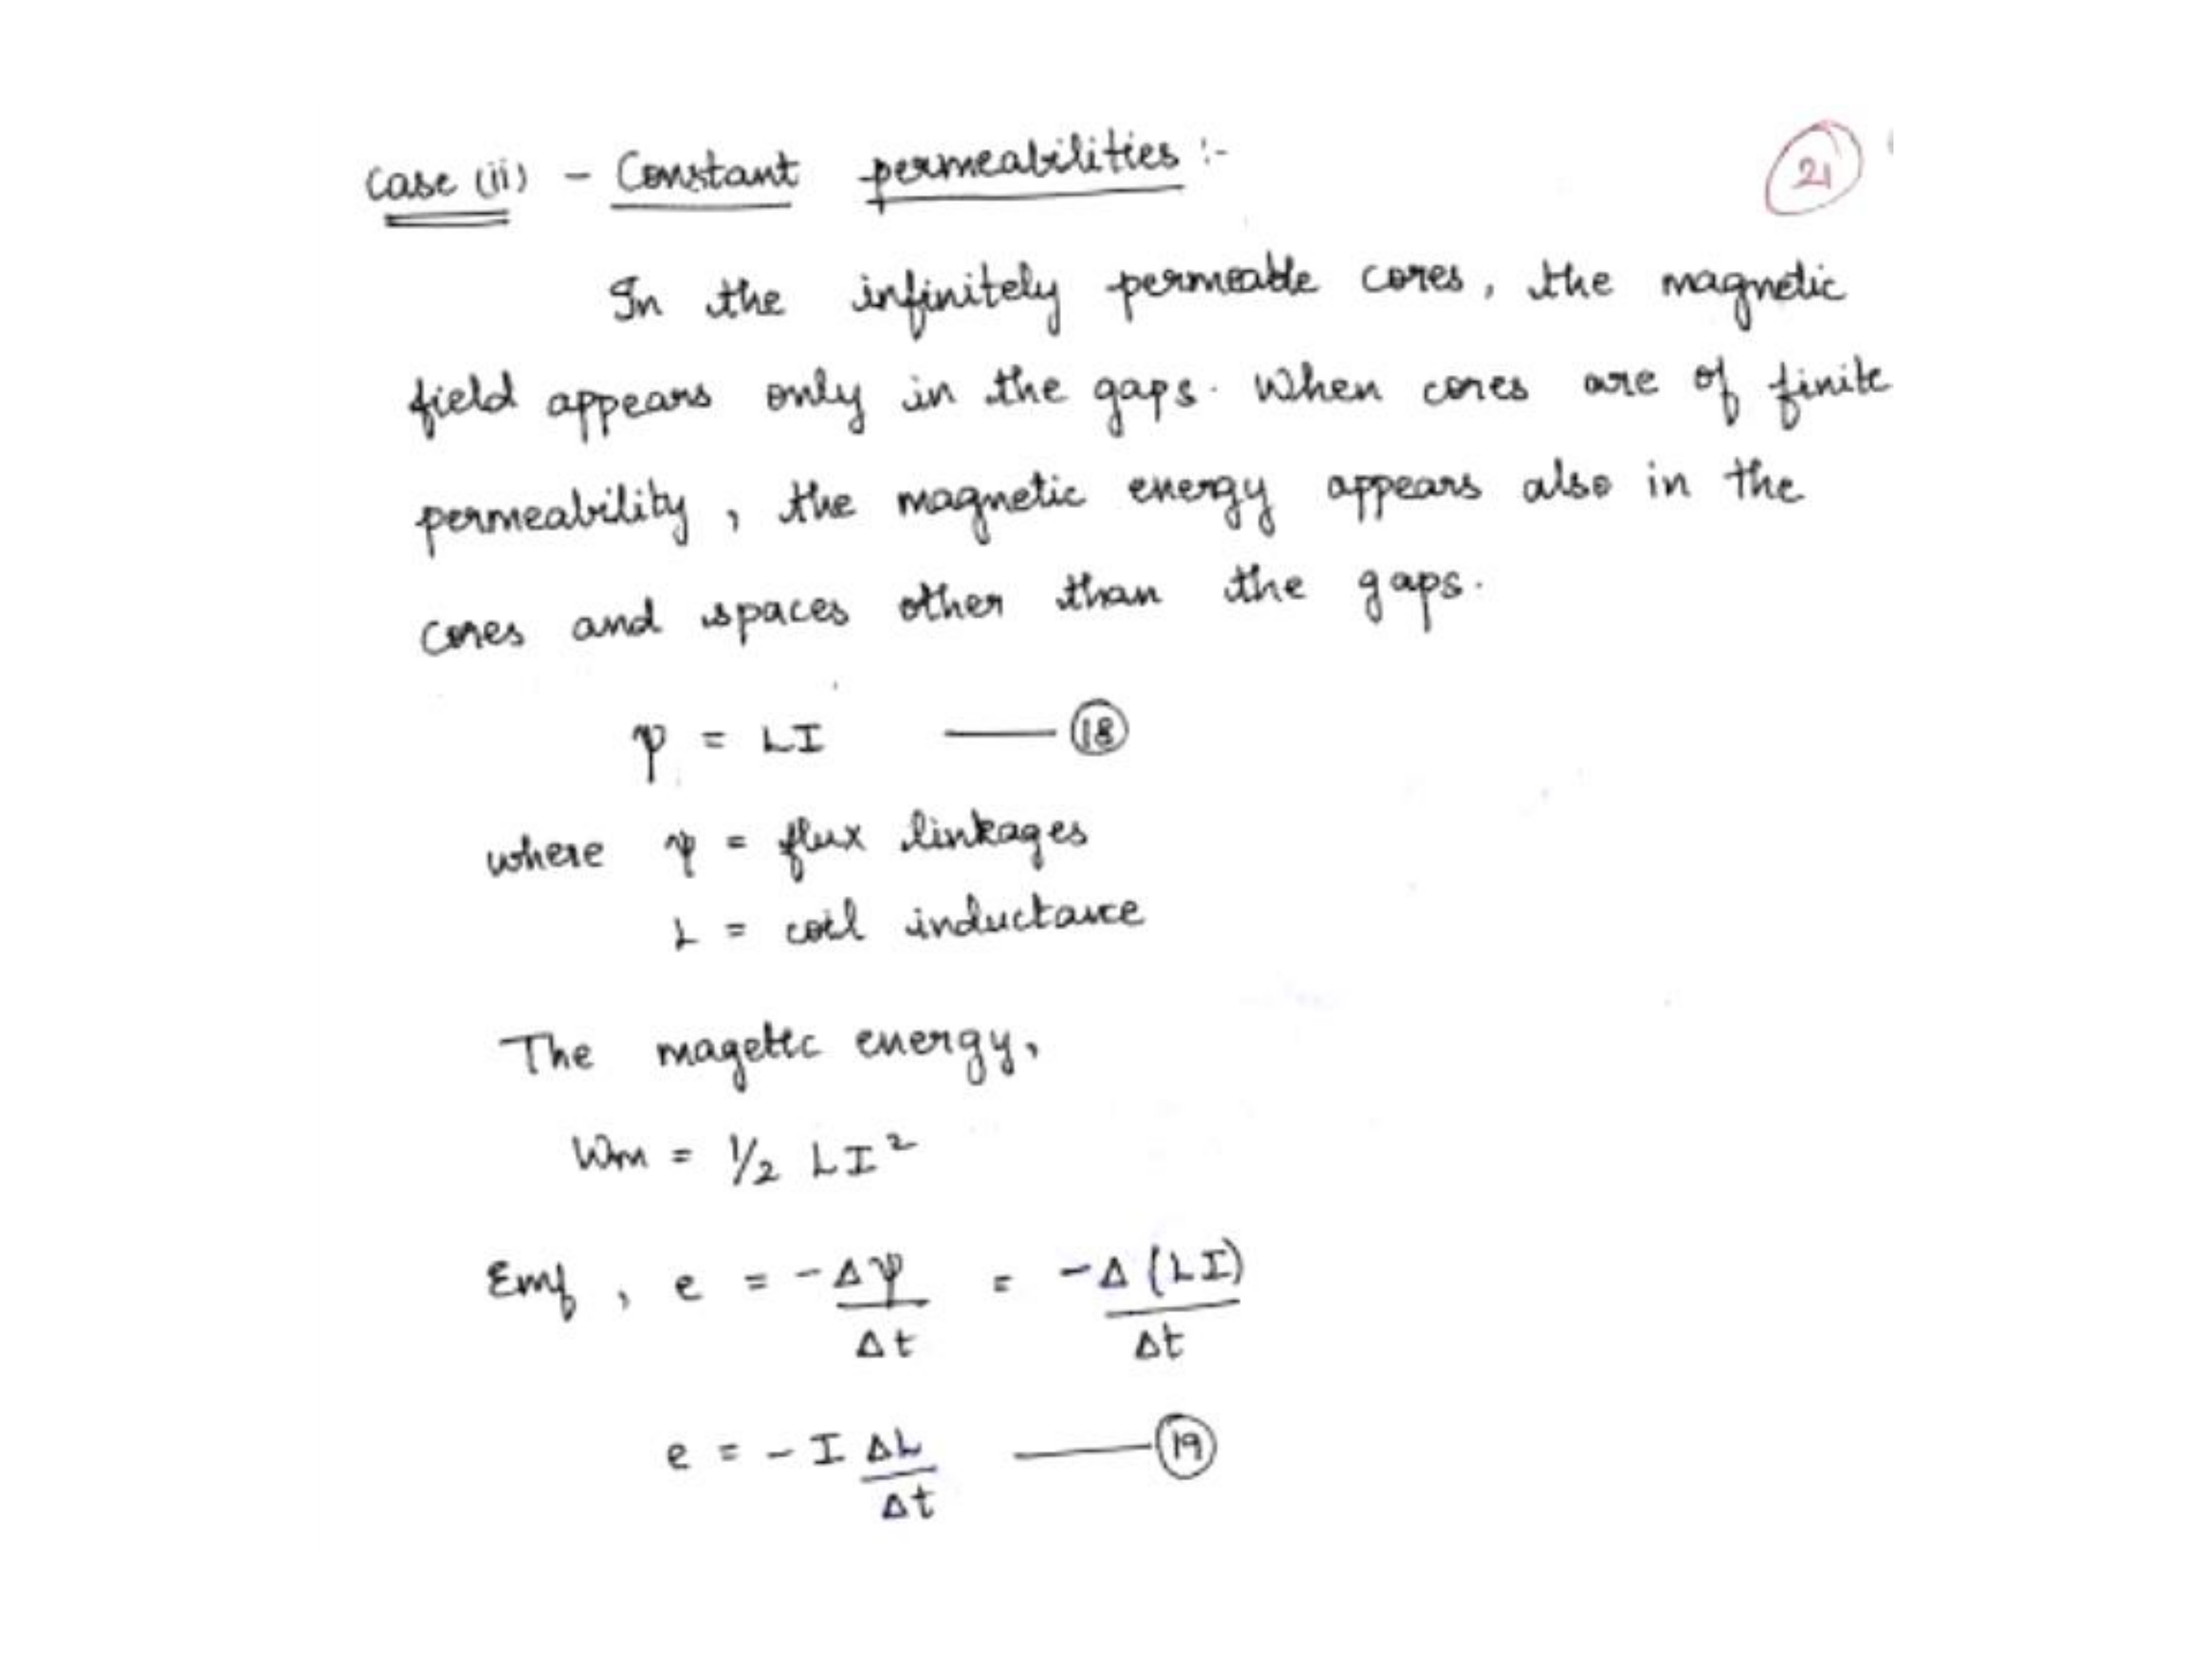 Case (ii) - Constant permeabilities :-
21
In the infinitely permeable cores, the magnetic
field appears only in the gaps. When cores are of finite
permeability, the magnetic energy appears also in the
cores and spaces other than the gaps.
ψ = LI —— 18
where ψ = flux linkages
L = coil inductance
The magettc energy,
Wm = 1/2 LI²
Emf, e = -Δψ/Δt = -Δ(LI)/Δt
e = -I ΔL/Δt —— 19